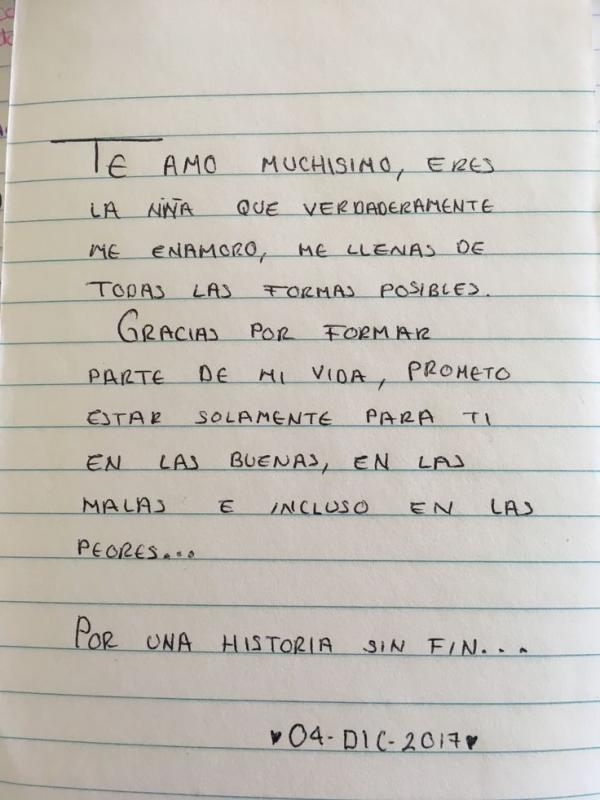 TE AMO MUCHISIMO, ERES
LA NIÑA QUE VERDADERAMENTE
ME ENAMORO, ME LLENAS DE
TODAS LAS FORMAS POSIBLES.
GRACIAS POR FORMAR
PARTE DE MI VIDA, PROMETO
ESTAR SOLAMENTE PARA TI
EN LAS BUENAS, EN LAS
MALAS E INCLUSO EN LAS
PEORES...
POR UNA HISTORIA SIN FIN...
♥04-DIC-2017♥